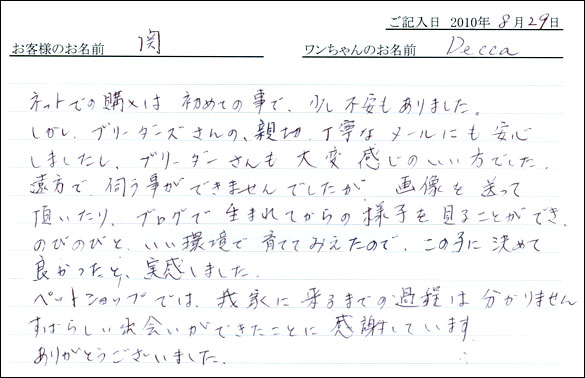 ご記入日 2010年 8月29日
お客様のお名前 関 ワンちゃんのお名前 Decca
ネットでの購入は 初めての事で、少し不安もありました。
しかし、ブリーダーズさんの、親切、丁寧なメールにも安心
しましたし、ブリーダーさんも大変感じのいい方でした。
遠方で、伺う事ができませんでしたが 画像を送って
頂いたり、ブログで生まれてからの様子を見ることができ、
のびのびと、いい環境で育ててみえたので、この子に決めて
良かったと、実感しました。
ペットショップでは、我家に来るまでの過程は分かりません
すばらしい出会いができたことに感謝しています
ありがとうございました。